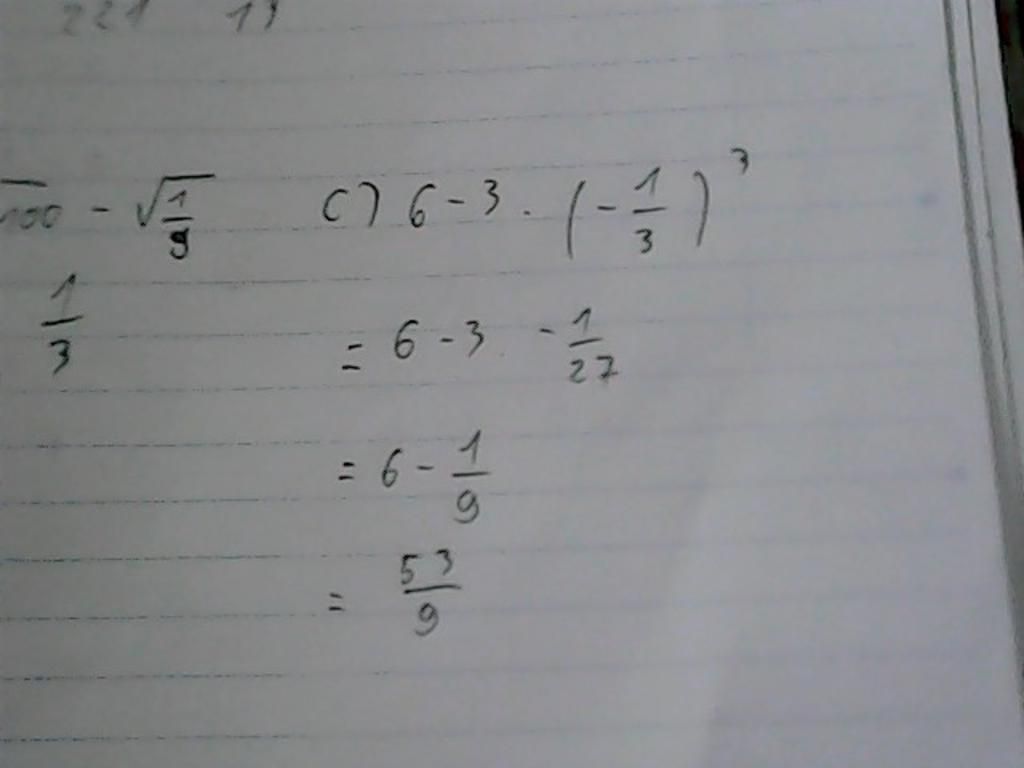 221 19
100 - √(1/9) C) 6 - 3 . (-1/3)³
1/3 = 6 - 3 . -1/27
= 6 - 1/9
= 53/9